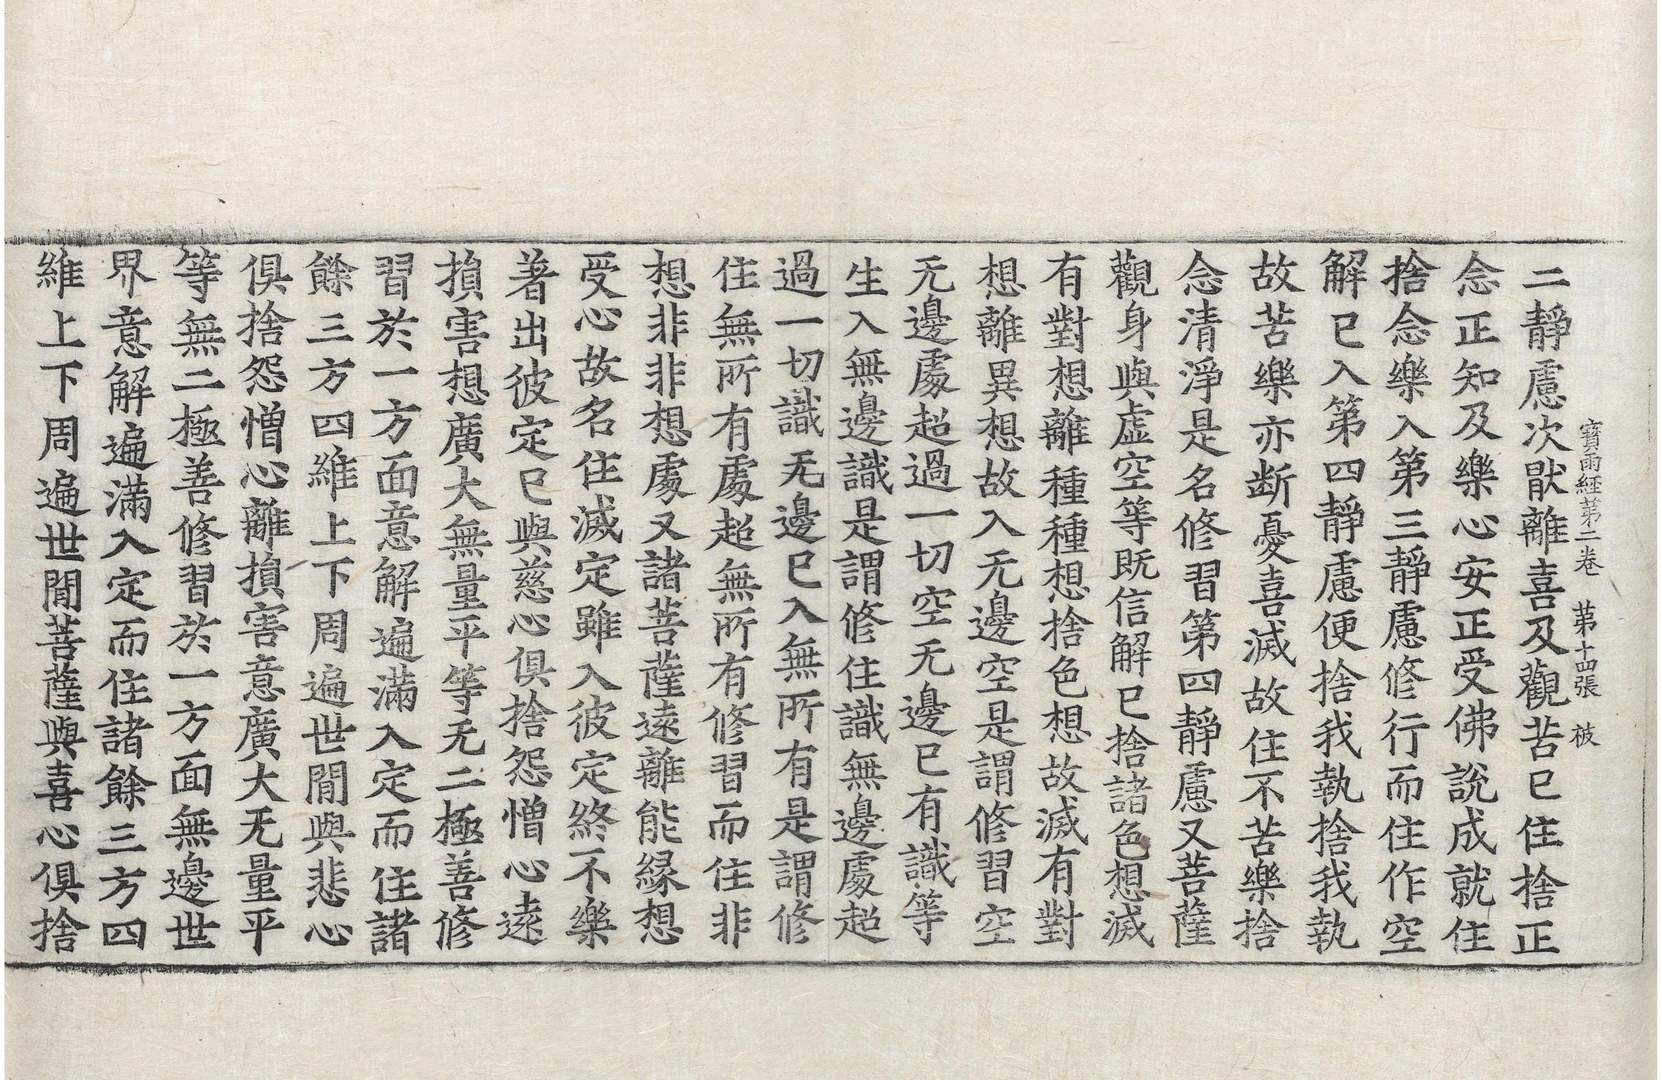 寶雨經第二卷 第十四張 被
二靜慮次猒離喜及觀苦已住捨正
念正知及樂心安正受佛說成就住
捨念樂入第三靜慮修行而住作空
解已入第四靜慮便捨我執捨我執
故苦樂亦断憂喜滅故住不苦樂捨
念清淨是名修習第四靜慮又菩薩
觀身與虛空等既信解已捨諸色想滅
有對想離種種想捨色想故滅有對
想離異想故入无邊空是謂修習空
无邊處超過一切空无邊已有識等
生入無邊識是謂修住識無邊處超
過一切識无邊已入無所有是謂修
住無所有處超無所有修習而住非
想非非想處又諸菩薩遠離能緣想
受心故名住滅定雖入彼定終不樂
著出彼定已與慈心俱捨怨憎心遠
損害想廣大無量平等无二極善修
習於一方面意解遍滿入定而住諸
餘三方四維上下周遍世閒與悲心
俱捨怨憎心離損害意廣大无量平
等無二極善修習於一方面無邊世
界意解遍滿入定而住諸餘三方四
維上下周遍世閒菩薩與喜心俱捨